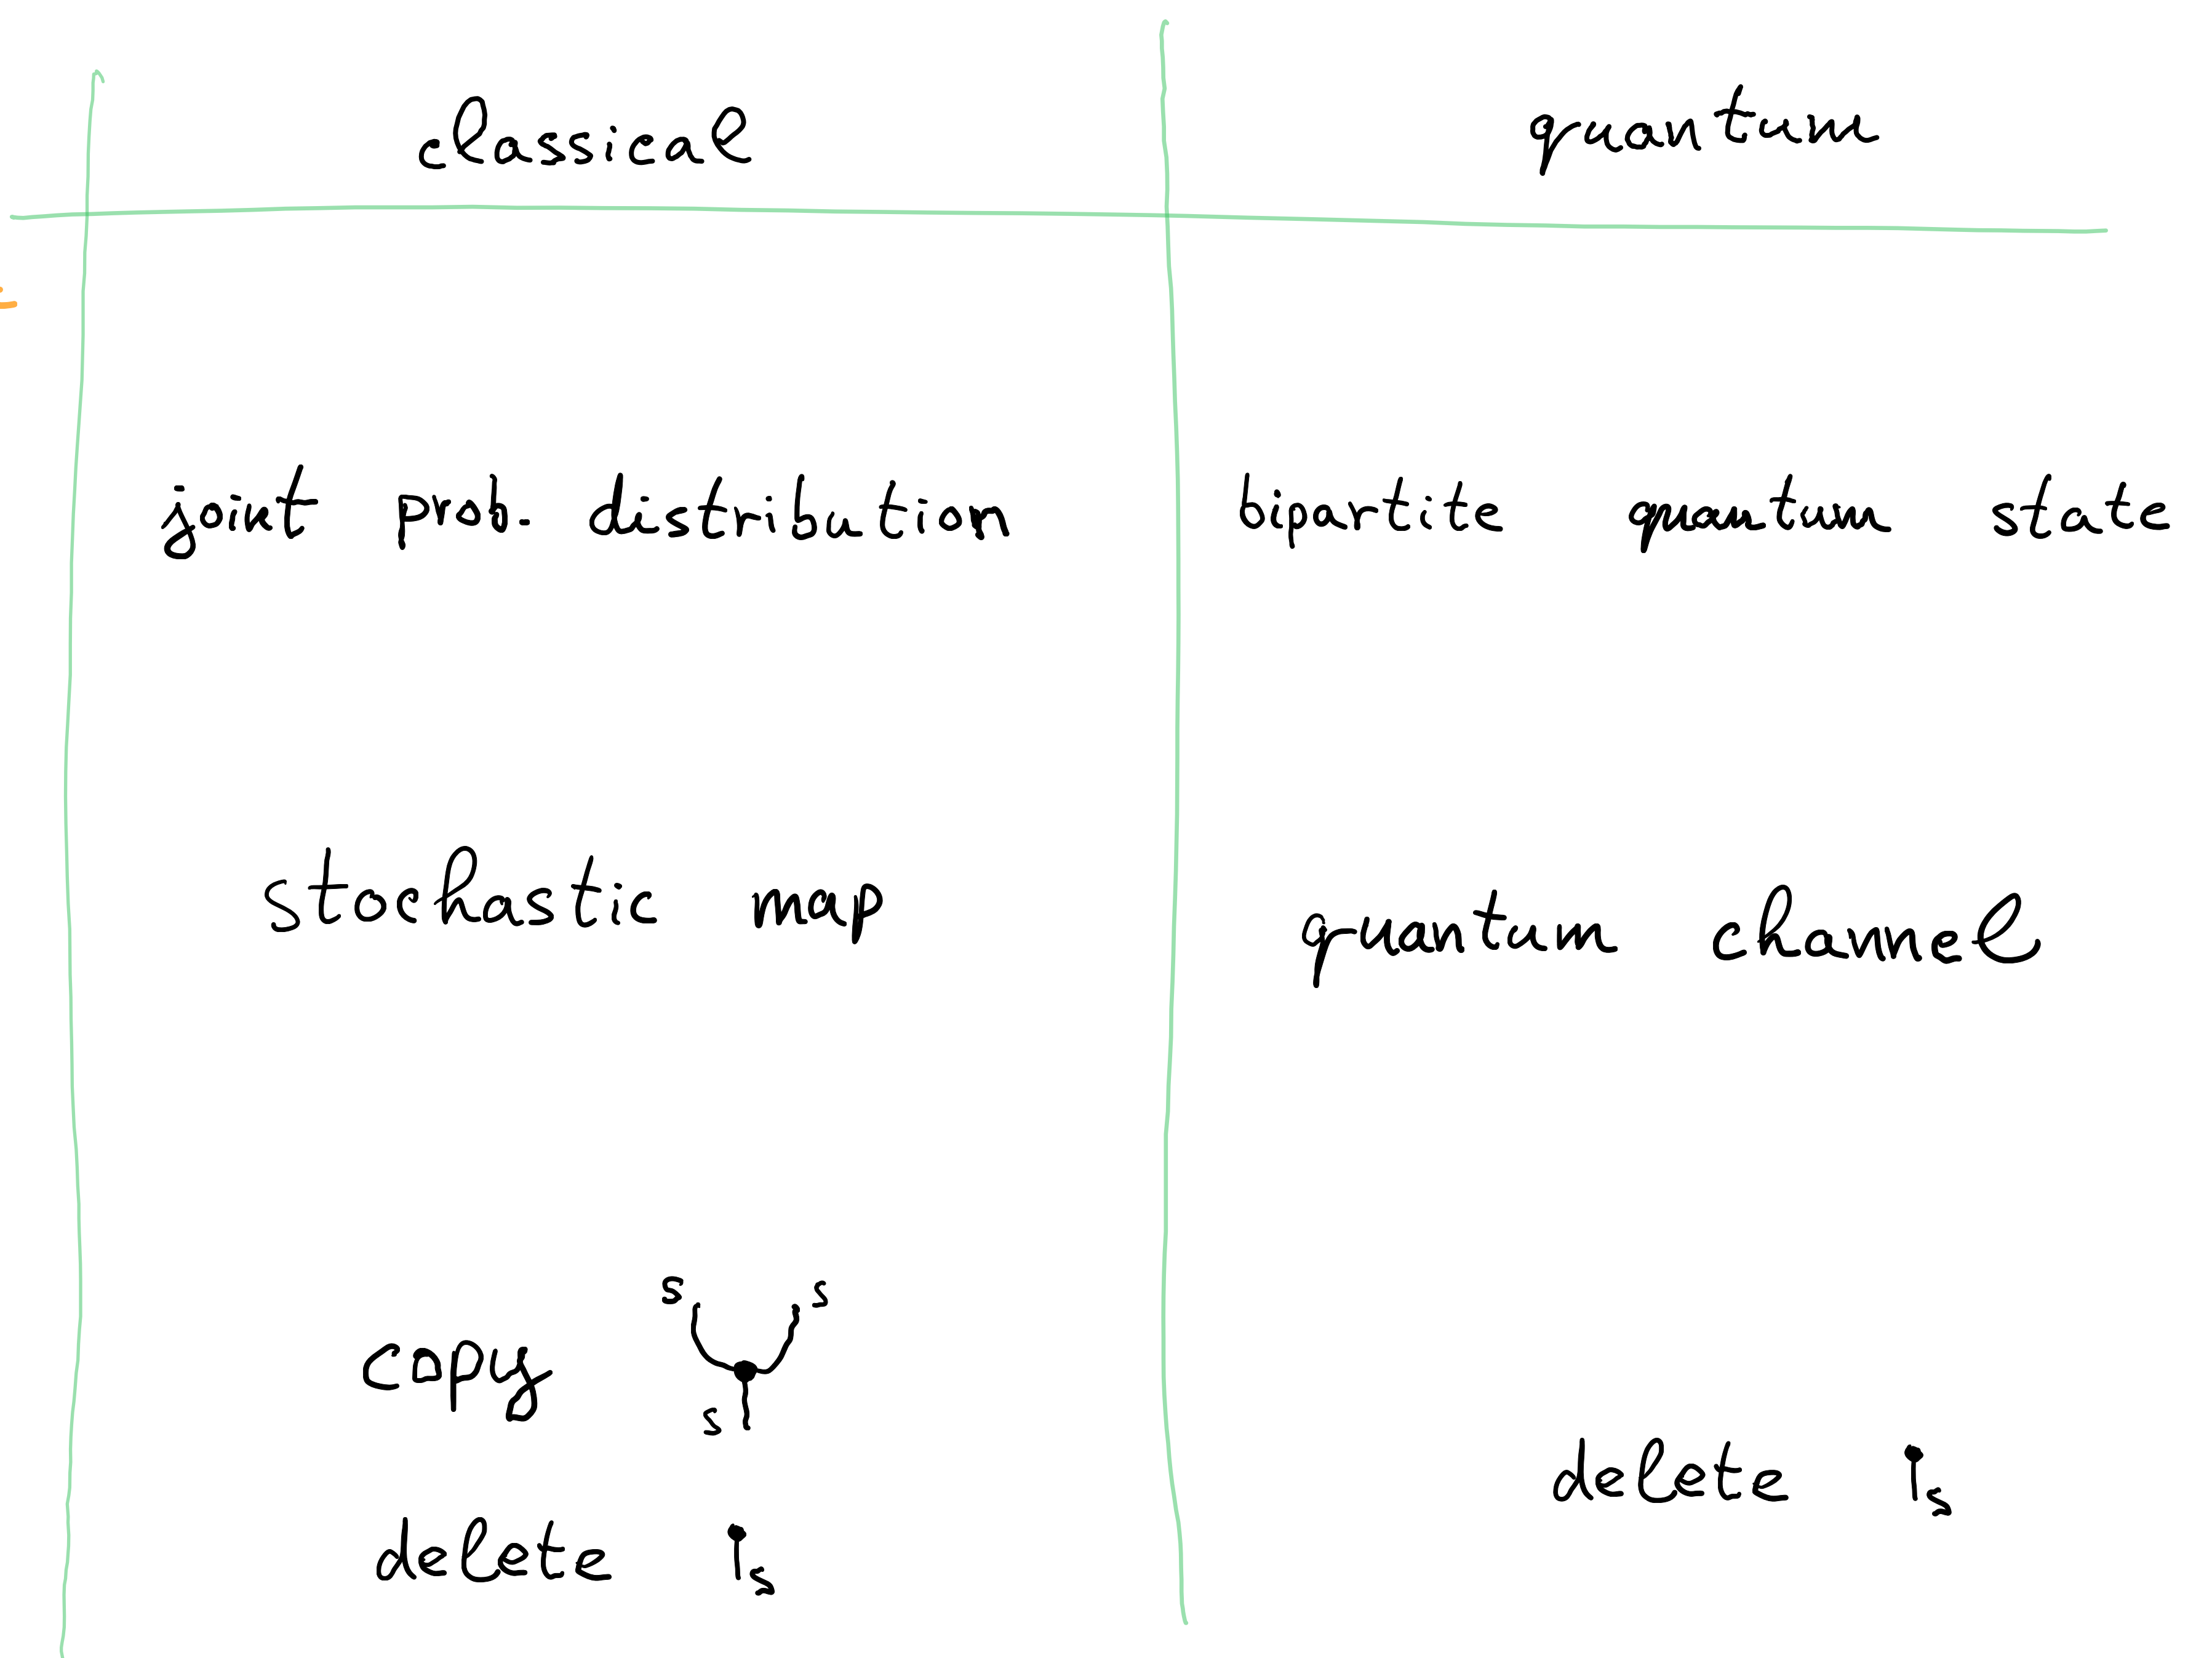 classical quantum
joint prob. distribution bipartite quantum state
stochastic map quantum channel
s s
copy
s
delete s
delete s